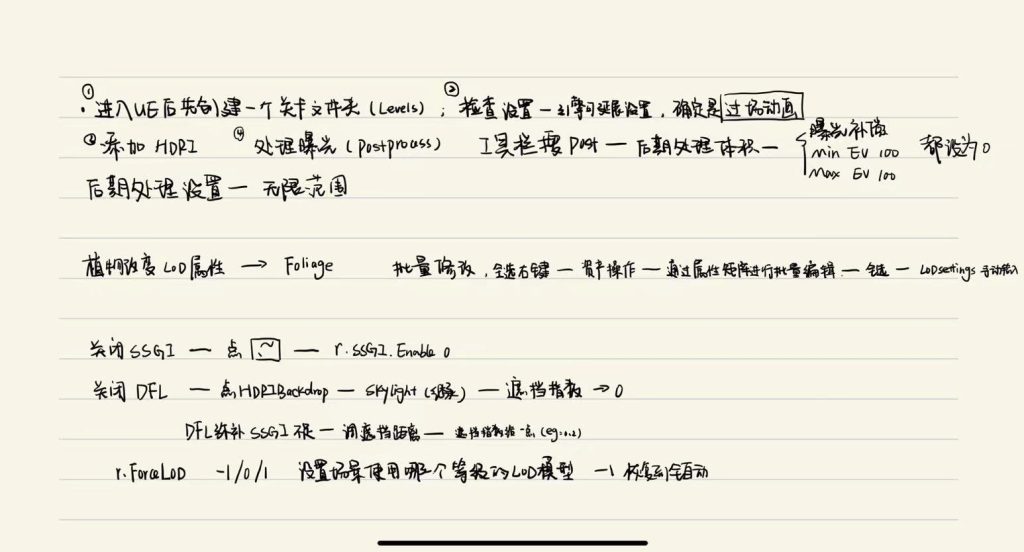 ① · 进入UE后先创建一个关卡文件夹(Levels); ② 检查设置一引擎可延展设置,确定是过场动画
③ 添加HDRI ④ 处理曝光(Postprocess) 工具栏搜Post — 后期处理体积 — 曝光补偿
Min EV 100 都设为0
Max EV 100
后期处理设置 — 无限范围
植物改变LOD属性 → Foliage 批量修改,全选右键 — 资产操作 — 通过属性矩阵进行批量编辑 — 全选 — LODsettings 手动输入
关闭SSGI — 点 [~] — r.SSGI.Enable 0
关闭DFL — 点HDRIBackdrop — Skylight(继承) — 遮挡指数 → 0
DFL弥补SSGI不足 — 调遮挡距离 — 遮挡指数给一点(eg:0.2)
r.ForceLOD -1/0/1 设置场景使用哪个等级的LOD模型 -1 恢复到全自动